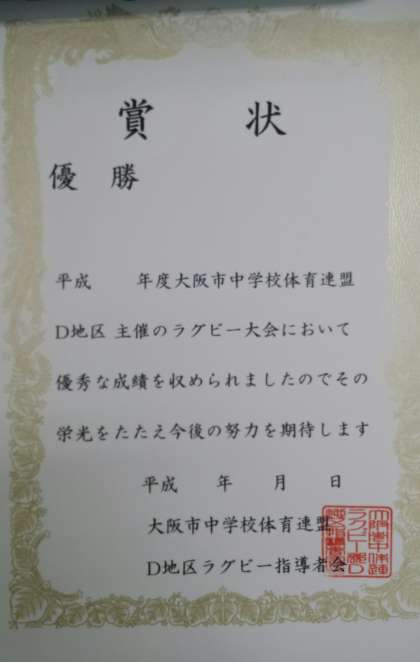 賞状
優勝
平成　　年度大阪市中学校体育連盟
D地区 主催のラグビー大会において
優秀な成績を収められましたのでその
栄光をたたえ今後の努力を期待します
平成　　年　　月　　日
大阪市中学校体育連盟
D地区ラグビー指導者会